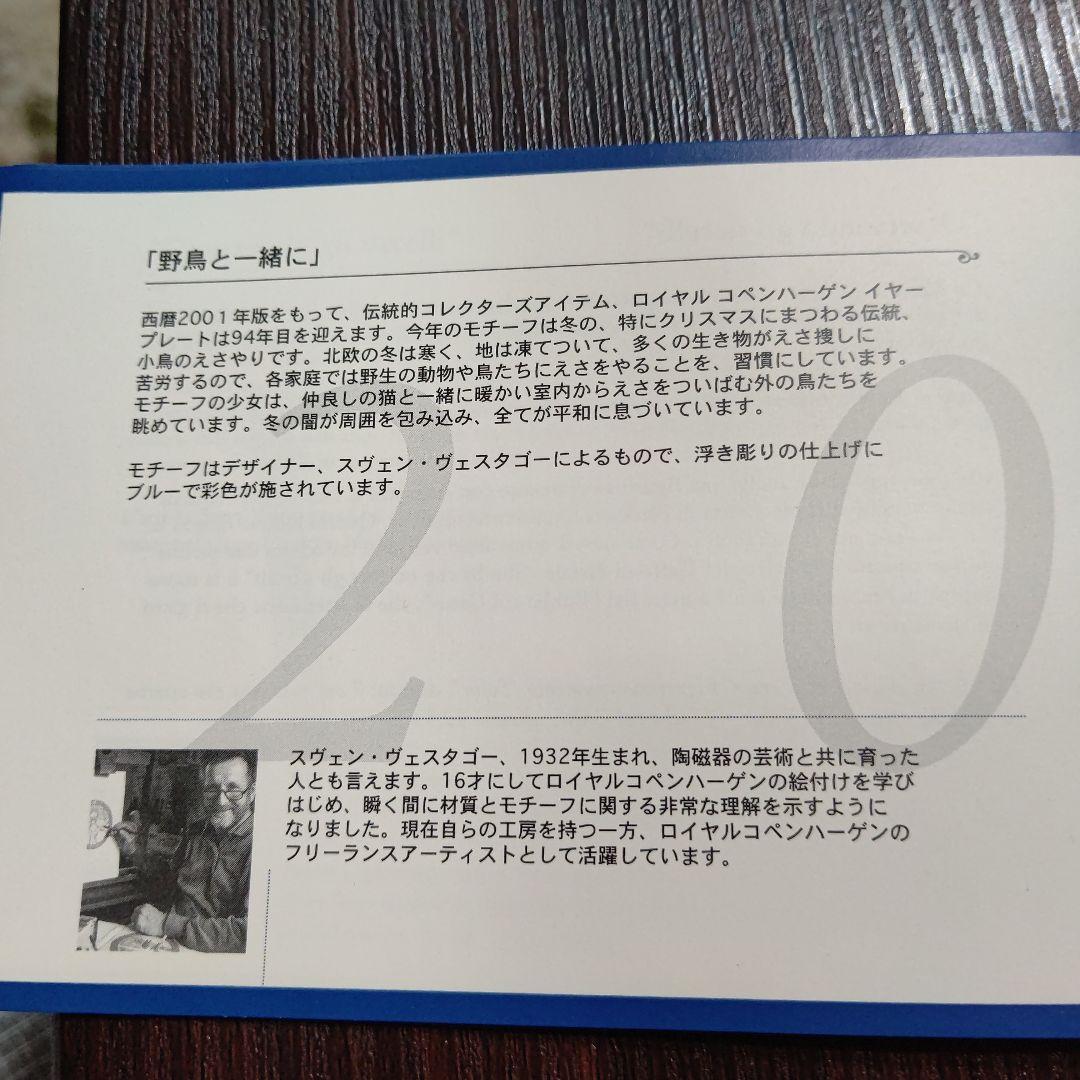 「野鳥と一緒に」
西暦2001年版をもって、伝統的コレクターズアイテム、ロイヤル コペンハーゲン イヤー
プレートは94年目を迎えます。今年のモチーフは冬の、特にクリスマスにまつわる伝統、
小鳥のえさやりです。北欧の冬は寒く、地は凍てついて、多くの生き物がえさ捜しに
苦労するので、各家庭では野生の動物や鳥たちにえさをやることを、習慣にしています。
モチーフの少女は、仲良しの猫と一緒に暖かい室内からえさをついばむ外の鳥たちを
眺めています。冬の闇が周囲を包み込み、全てが平和に息づいています。
モチーフはデザイナー、スヴェン・ヴェスタゴーによるもので、浮き彫りの仕上げに
ブルーで彩色が施されています。
20
スヴェン・ヴェスタゴー、1932年生まれ、陶磁器の芸術と共に育った
人とも言えます。16才にしてロイヤルコペンハーゲンの絵付けを学び
はじめ、瞬く間に材質とモチーフに関する非常な理解を示すように
なりました。現在自らの工房を持つ一方、ロイヤルコペンハーゲンの
フリーランスアーティストとして活躍しています。